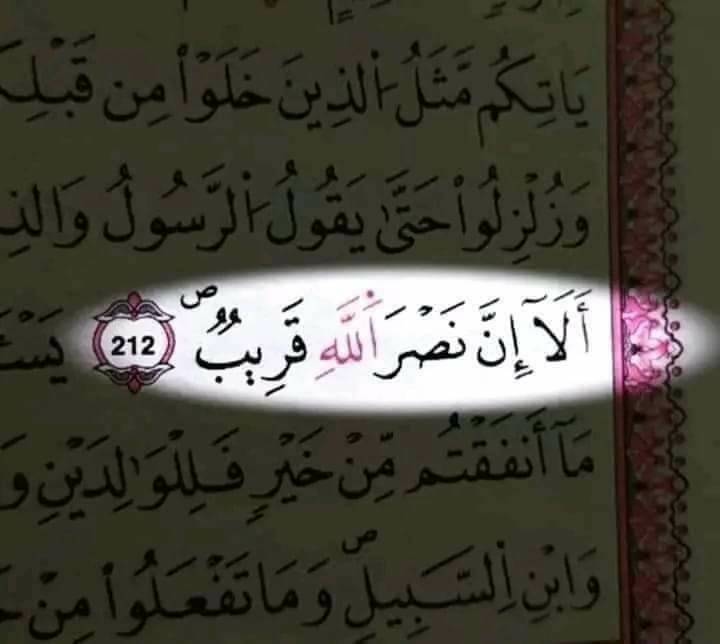 يَاتِكُم مَّثَلُ اُ۬لذِينَ خَلَوْاْ مِن قَبْلِكُ
وَزُلْزِلُواْ حَتَّىٰ يَقُولُ اُ۬لرَّسُولُ وَالذِ
أَلَآ إِنَّ نَصْرَ اَ۬للَّهِ قَرِيبٌ ۖ 212 يَسْـَٔ
مَآ أَنفَقْتُم مِّنْ خَيْرٍ فَلِلْوَٰلِدَيْنِ وَ
وَابْنِ اِ۬لسَّبِيلِ ۖ وَمَا تَفْعَلُواْ مِنْ خَ